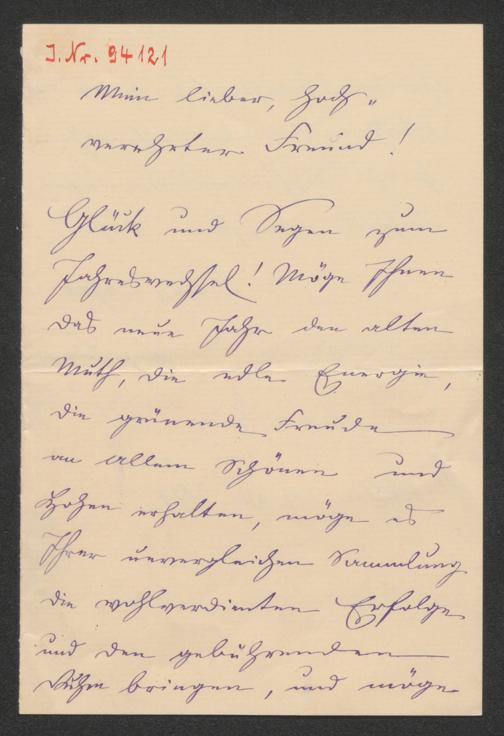 I. Nr. 94121
Mein lieber, hoch-
verehrter Freund!
Glück und Segen zum
Jahreswechsel! Möge Ihnen
das neue Jahr den alten
Muth, die edle Energie,
die grünende Freude
an allem Schönen und
Hohen erhalten, möge es
Ihrer unvergleichen Sammlung
die wohlverdienten Erfolge
und den gebührenden
Ruhm bringen, und möge